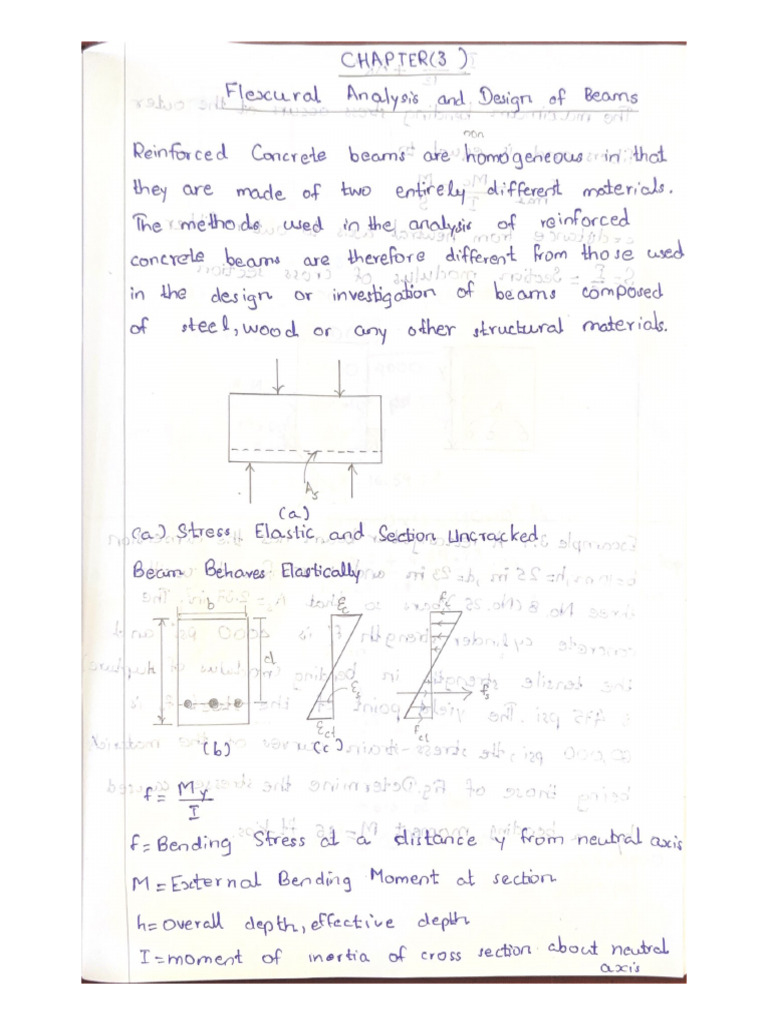 CHAPTER(3)
Flexural Analysis and Design of Beams
non
Reinforced Concrete beams are homogeneous in that
they are made of two entirely different materials.
The methods used in the analysis of reinforced
concrete beams are therefore different from those used
in the design or investigation of beams composed
of steel, wood or any other structural materials.
As
(a)
(a) Stress Elastic and Section Uncracked
Beam Behaves Elastically
b
d
εc
εs
εct
fc
fs
fct
(b)
(c)
f = My/I
f = Bending Stress at a distance y from neutral axis
M = External Bending Moment at section
h = overall depth, effective depth
I = moment of inertia of cross section about neutral
axis